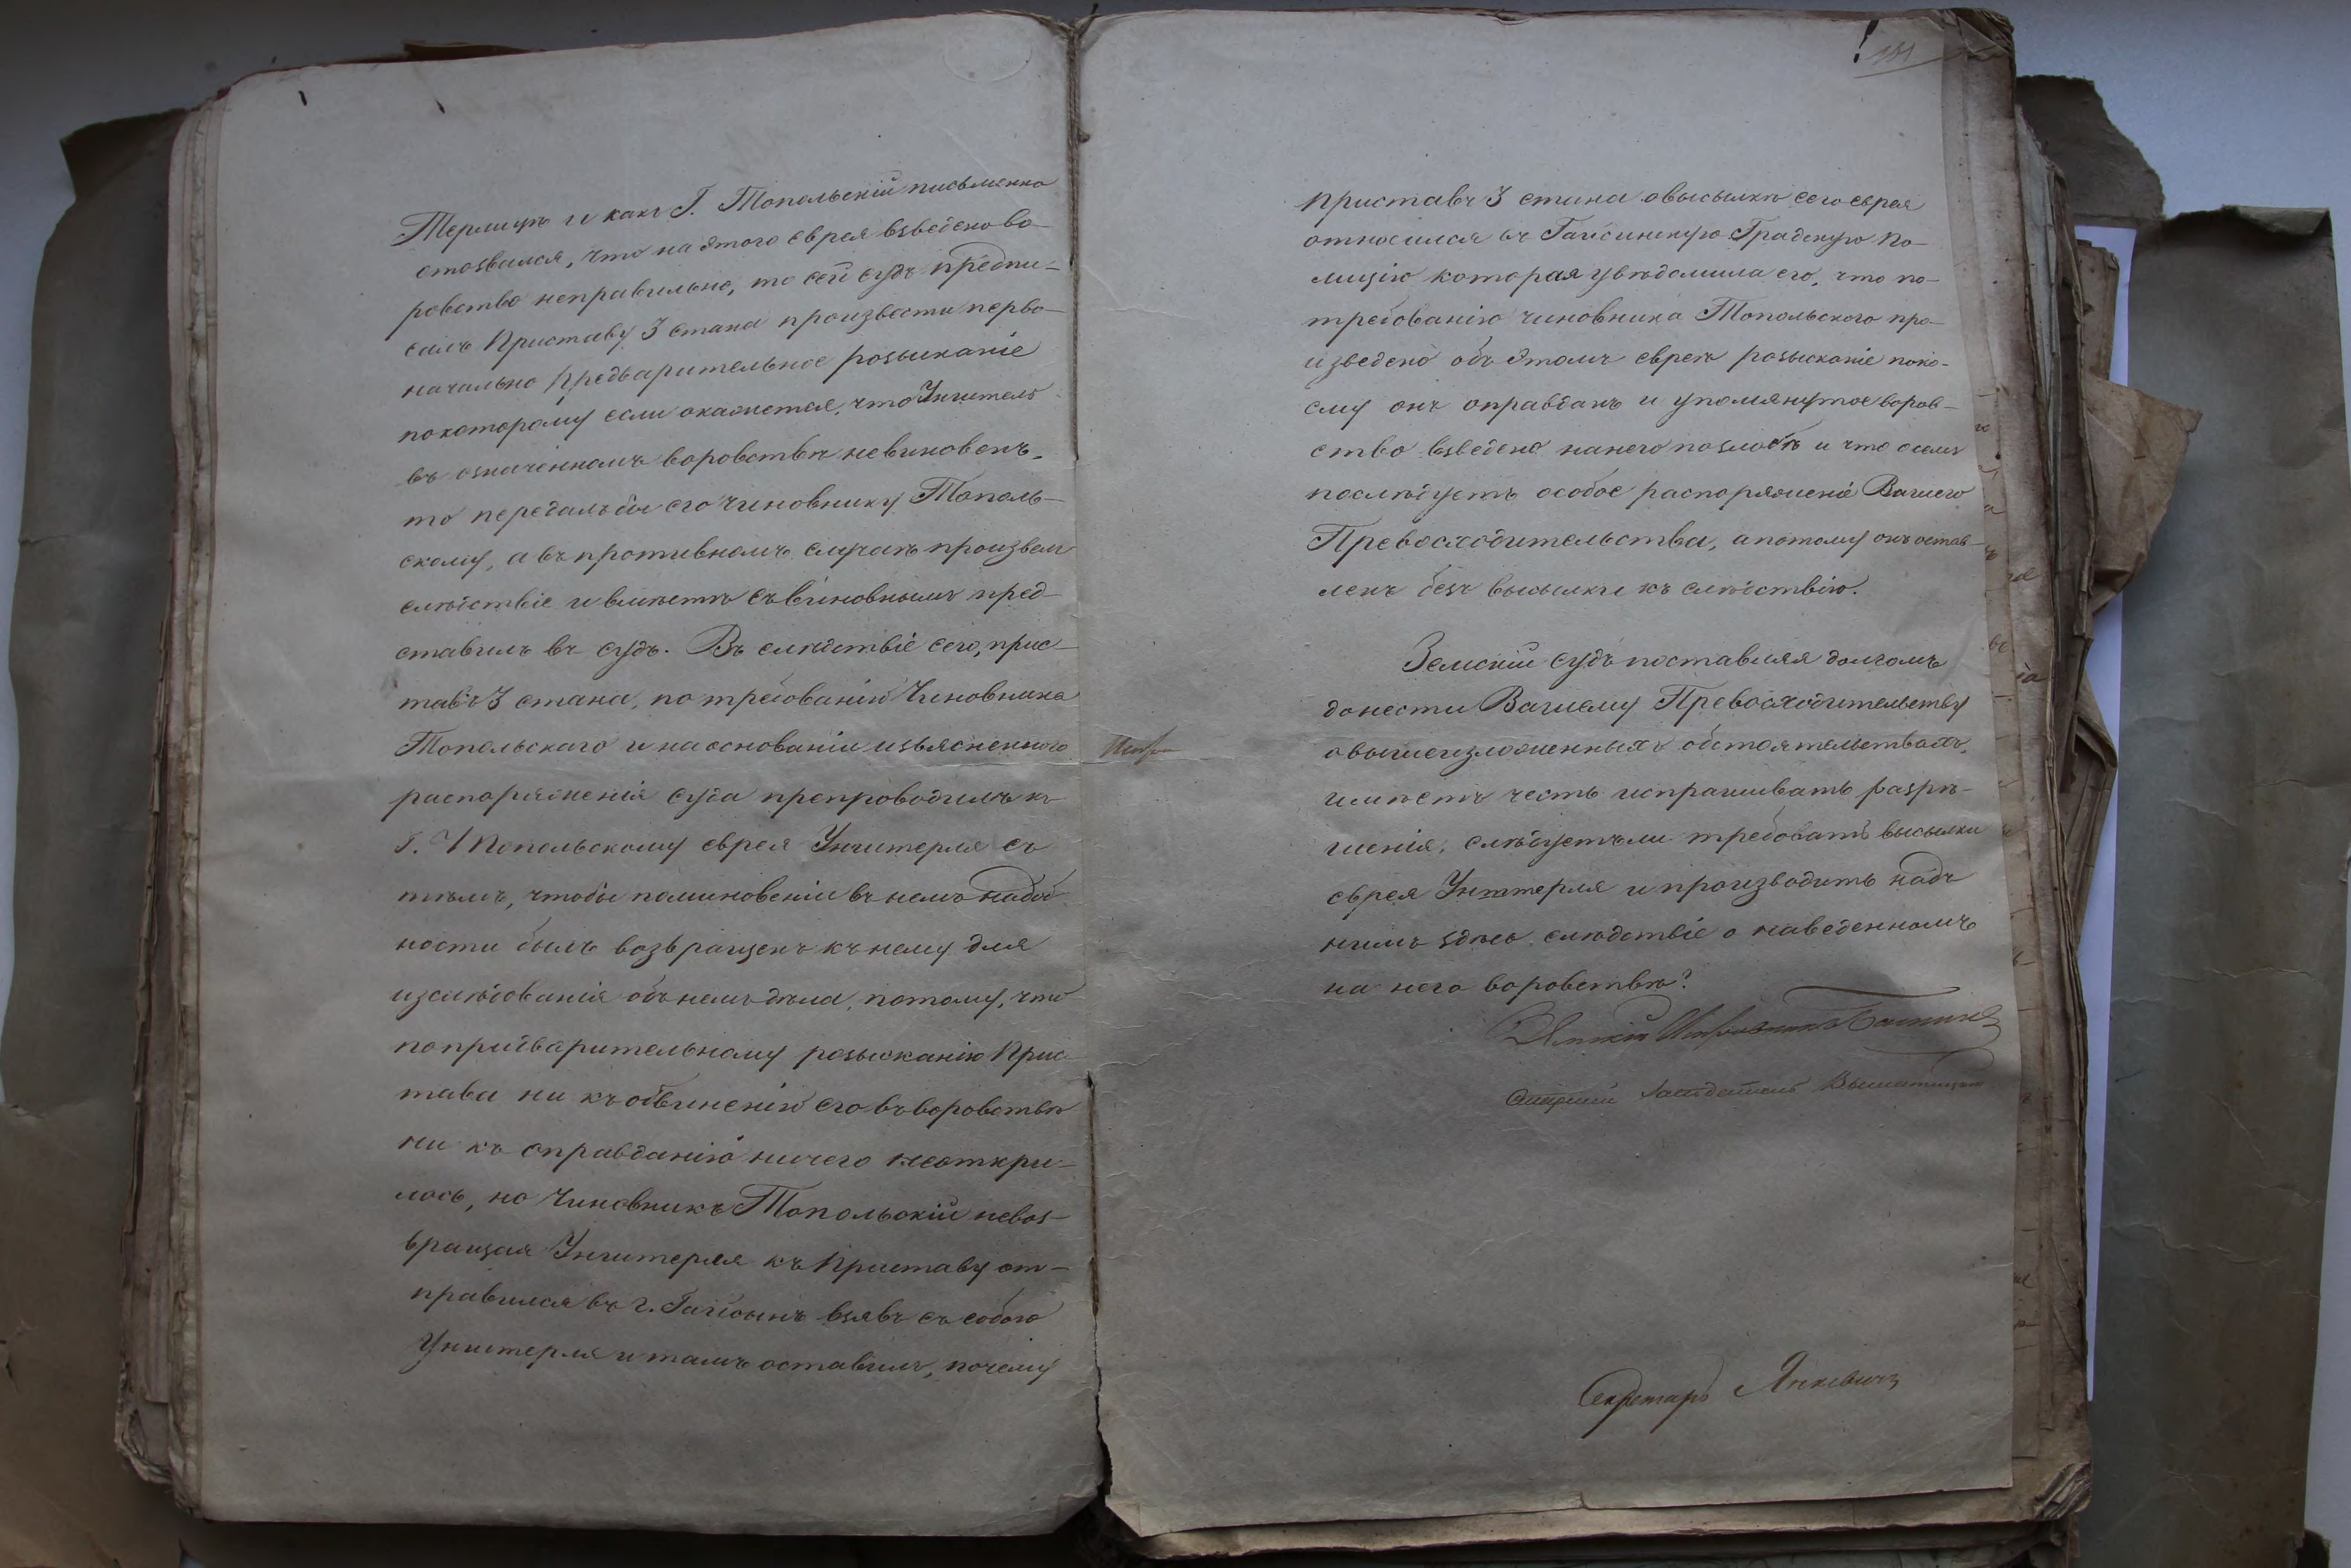 Терлицъ и какъ Г. Топольскій письменно
отозвался, что на этого еврея взведено во-
ровство неправильно, то сей судъ предпи-
салъ Приставу 3 стана произвести перво-
начально предварительное розысканіе
покоторому если окажется, что Унгитель
въ означенномъ воровствѣ невиновенъ,
то передалъ бы его чиновнику Тополь-
скому, а въ противномъ случаѣ произвелъ
слѣдствіе и вмѣстѣ съ виновнымъ пред-
ставилъ въ судъ. Въ слѣдствіе сего, прис-
тавъ 3 стана, по требованію Чиновника
Топольскаго и на основаніи изъясненного
распоряженія суда препроводилъ къ
Г. Топольскому еврея Унгитерля съ
тѣмъ, чтобы поминовеніи въ немъ надоб
ности былъ возвращенъ къ нему для
изслѣдованія объ немъ дѣла, потому, что
попридварительному розысканію Прис
тава ни къ обвиненію его въ воровствѣ
ни къ оправданію ничего неоткри-
лось, но Чиновникъ Топольскій невоз-
вращая Унгитерля къ Приставу от-
правился въ г. Гайсынъ взявъ съ собою
Унгитерля и тамъ оставилъ, почему
приставъ 3 стана о высылкѣ сего еврея
относился въ Гайсинскую Градскую По-
лицію которая увѣдомила его, что по-
требованію чиновника Топольского про-
изведено объ этомъ евреѣ розысканіе поко-
ему онъ оправданъ и упомянутое воров-
ство взведено нанего по злобѣ и что о семъ
послѣдуетъ особое распоряженіе Вашего
Превосходительства, а потому онъ остав-
ленъ безъ высылки къ слѣдствію.
Земскій судъ поставляя долгомъ
донести Вашему Превосходительству
овышеизложенныхъ обстоятельствахъ,
имѣетъ честь испрашивать разрѣ-
шенія, слѣдуетъ ли требовать высылки
еврея Унгитерля и производить надъ
нимъ здѣсь слѣдствіе о наведенномъ
на него воровствѣ?
Земскій Исправникъ
Старшій Засѣдатель
Секретарь Янкевичъ